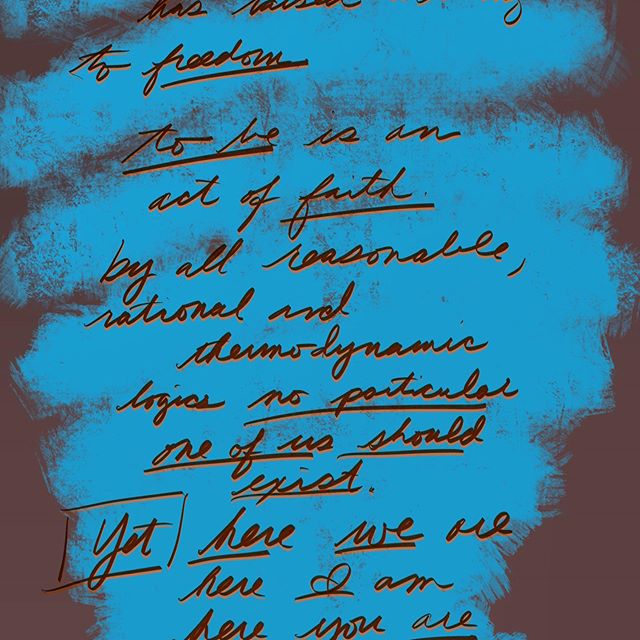 has raised
to freedom
to be is an
act of faith.
by all reasonable,
rational and
thermodynamic
logics no particular
one of us should
exist.
Yet here we are
here I am
here you are